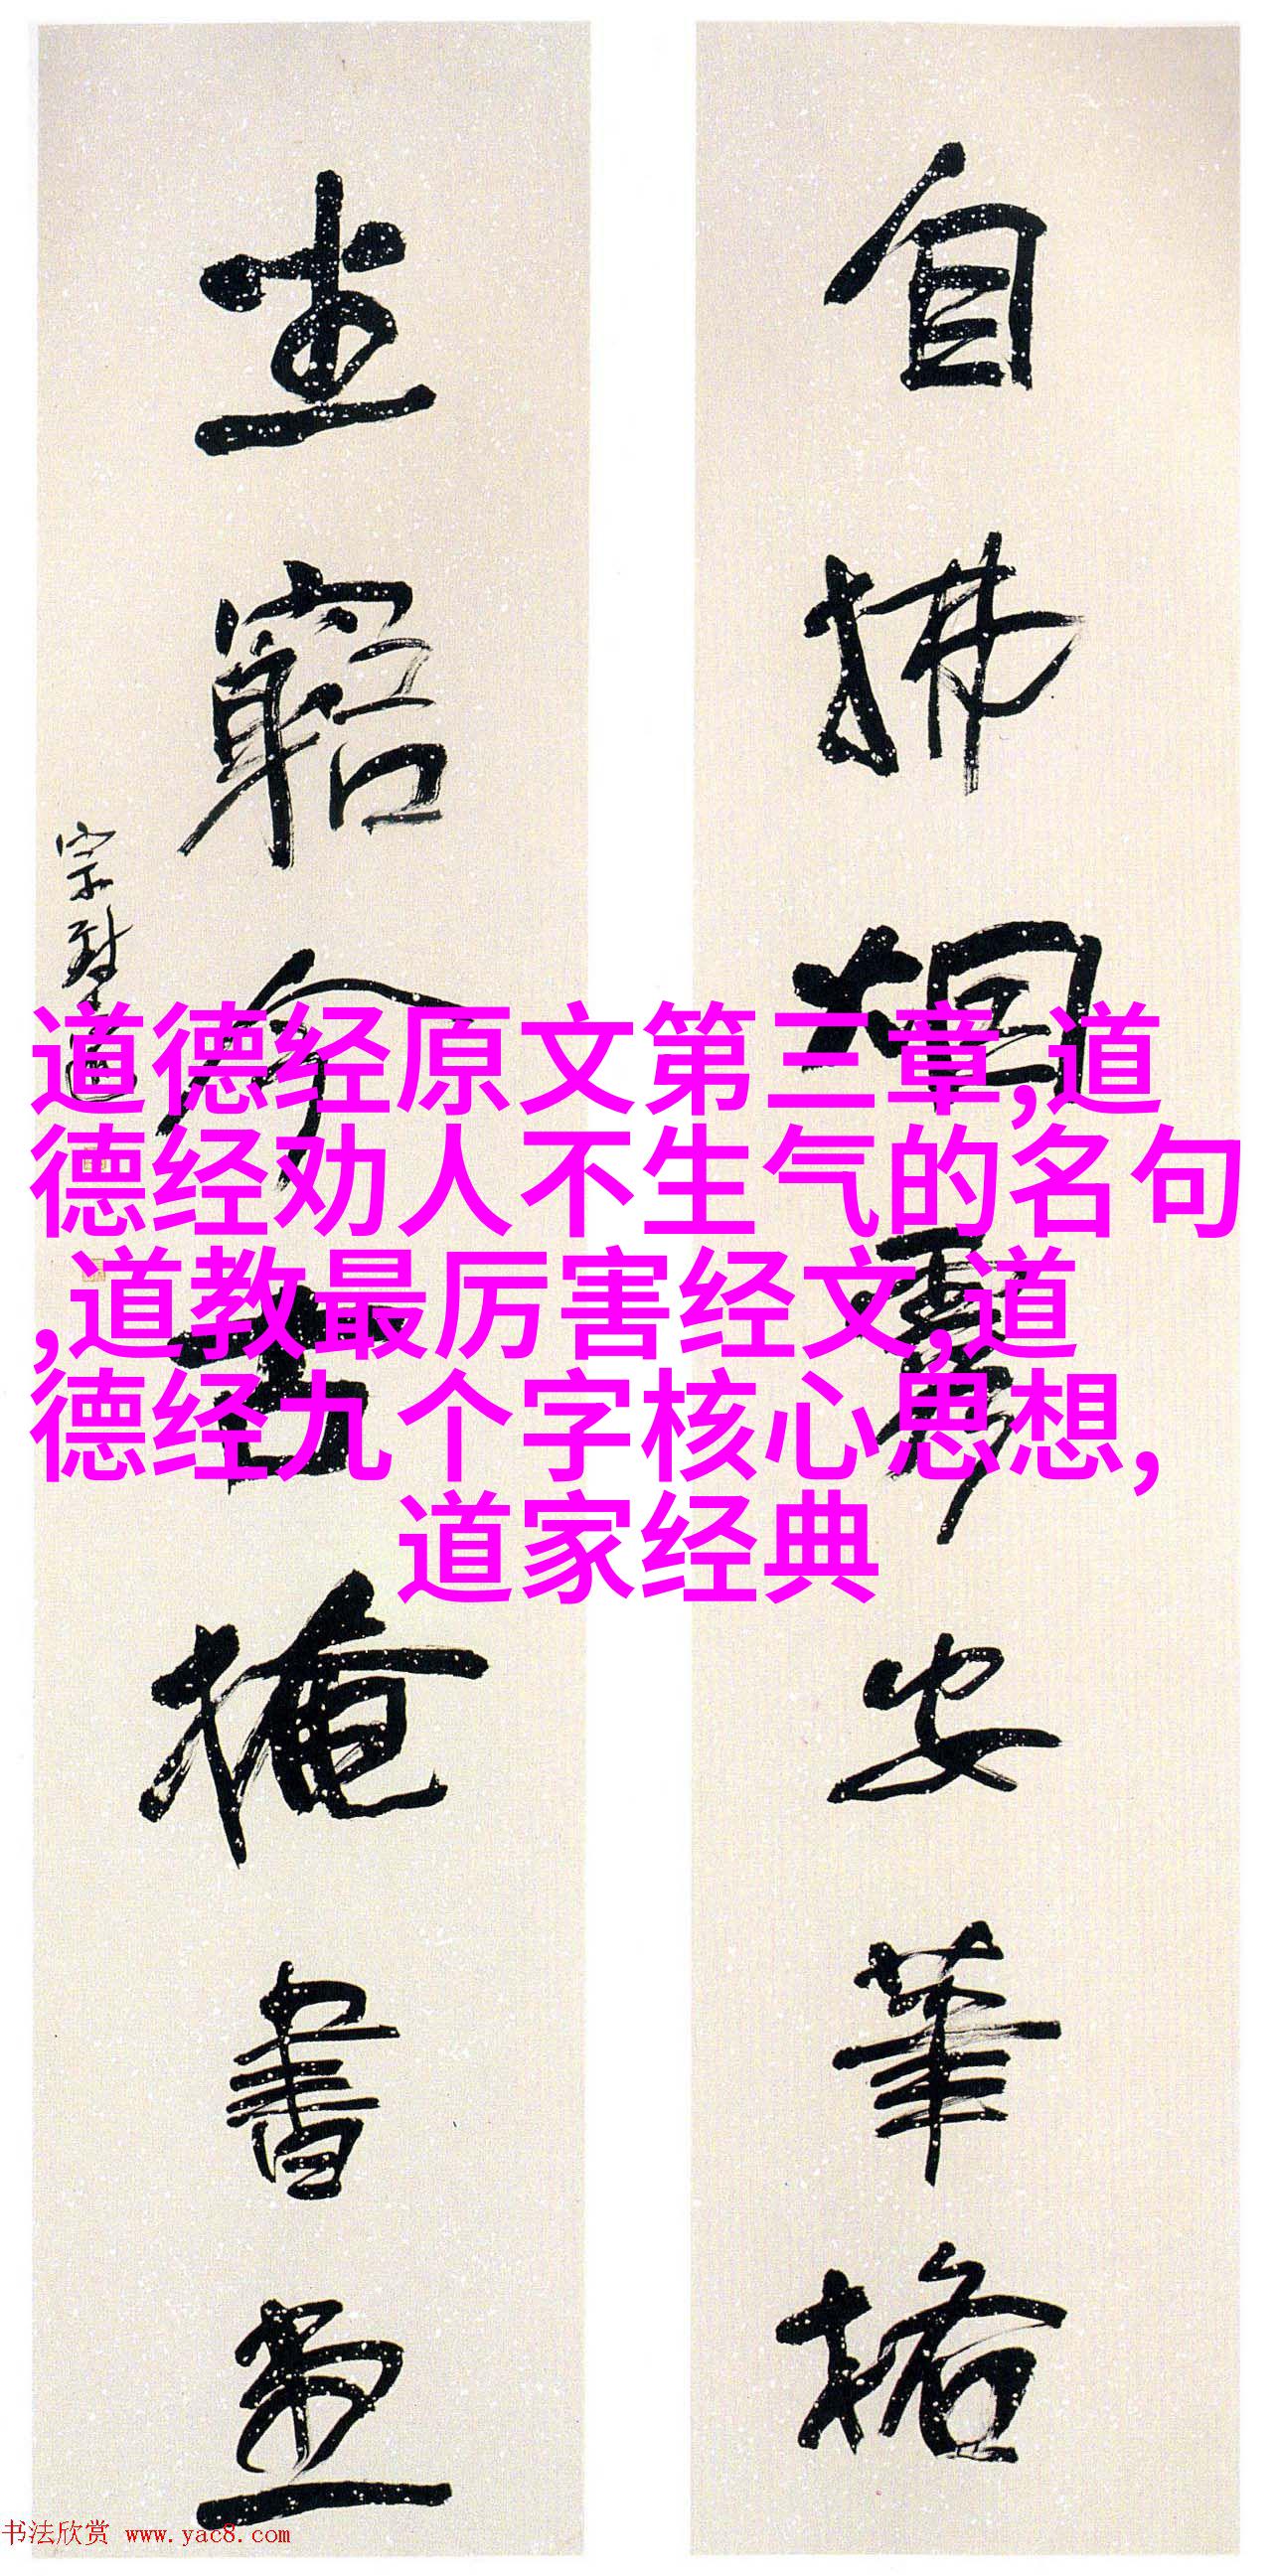 自拂烟霏安笔格
坐窮今古掩書堂
宗聖
道德经原文第三章,道
德经劝人不生气的名句
,道教最厉害经文,道
德经九个字核心思想,
道家经典
书法欣赏 www.yac8.com